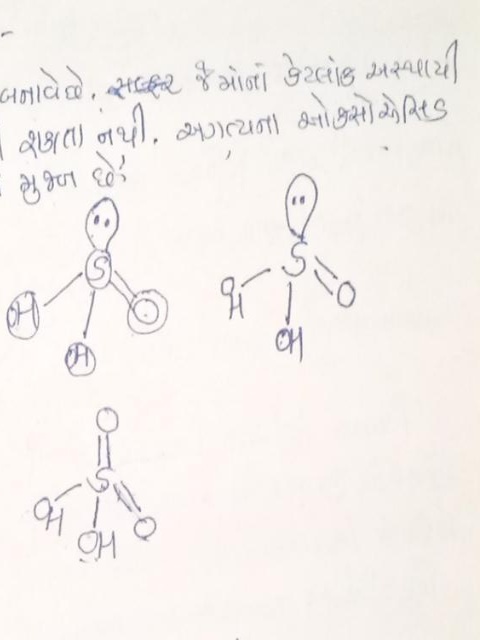 બનાવે છે. સલ્ફર જેમાંનાં કેટલાંક અસ્થાયી
શકાતા નથી. અગત્યના ઓક્સોએસિડ
મુજબ છે:
S
H O
H
S
OH O
OH
O
S
OH O
OH